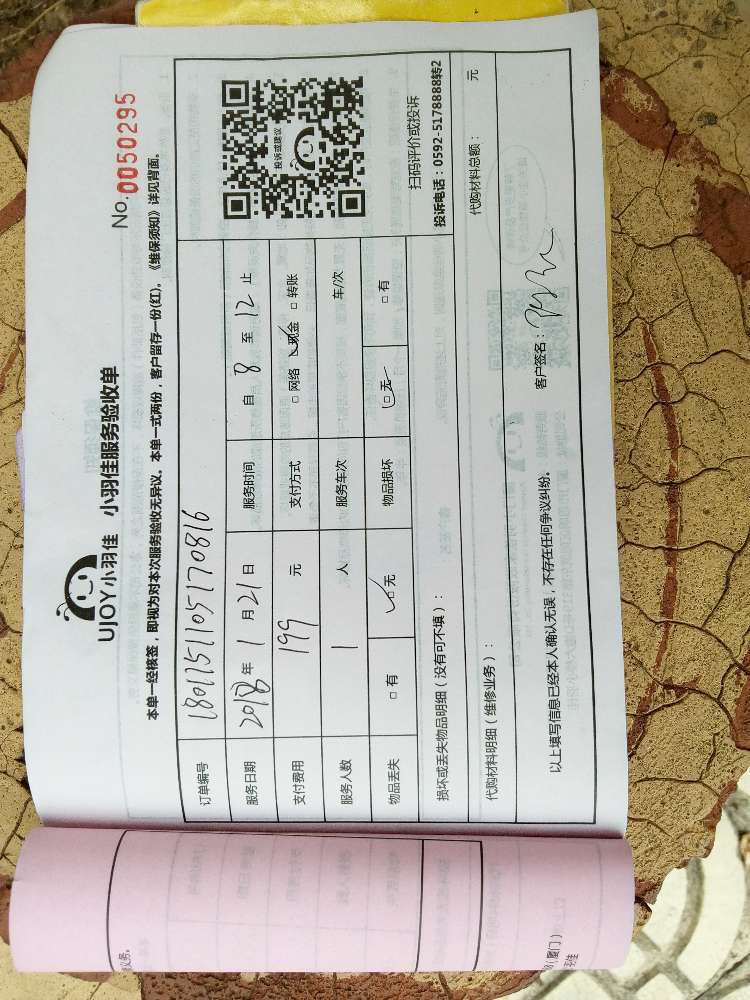 No. 0050295
UJOY小羽佳 小羽佳服务验收单
本单一经核签，即视为对本次服务验收无异议。本单一式两份，客户留存一份(红)。《维保须知》详见背面。
订单编号 180115110517 0816
服务日期 2018年 1 月 21 日 服务时间 自 8 至 12 止
支付费用 199 元 支付方式 □ 网络 ☑ 现金 □ 转账
服务人数 1 人 服务车次 车/次
物品丢失 □ 有 ☑ 无 物品损坏 ☑ 无 □ 有
投诉或建议
扫码评价或投诉
投诉电话：0592-5178888转2
损坏或丢失物品明细（没有可不填）：
代购材料明细（维修业务）： 代购材料总额： 元
以上填写信息已经本人确认无误，不存在任何争议纠纷。 客户签名：